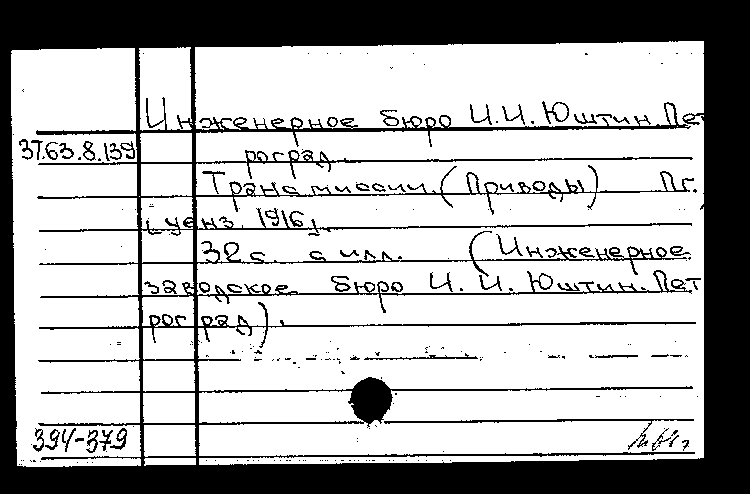 Инженерное бюро И.И. Юштин. Пет
37.63.8.139
роград.
Трансмиссии. (Приводы) Пг.
[ценз. 1916].
32 с. с илл. (Инженерное
заводское бюро И. И. Юштин. Пет
роград).
394-379